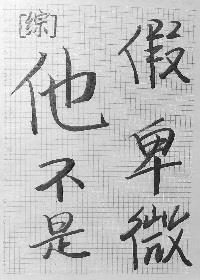 [综]
他不是
假卑微